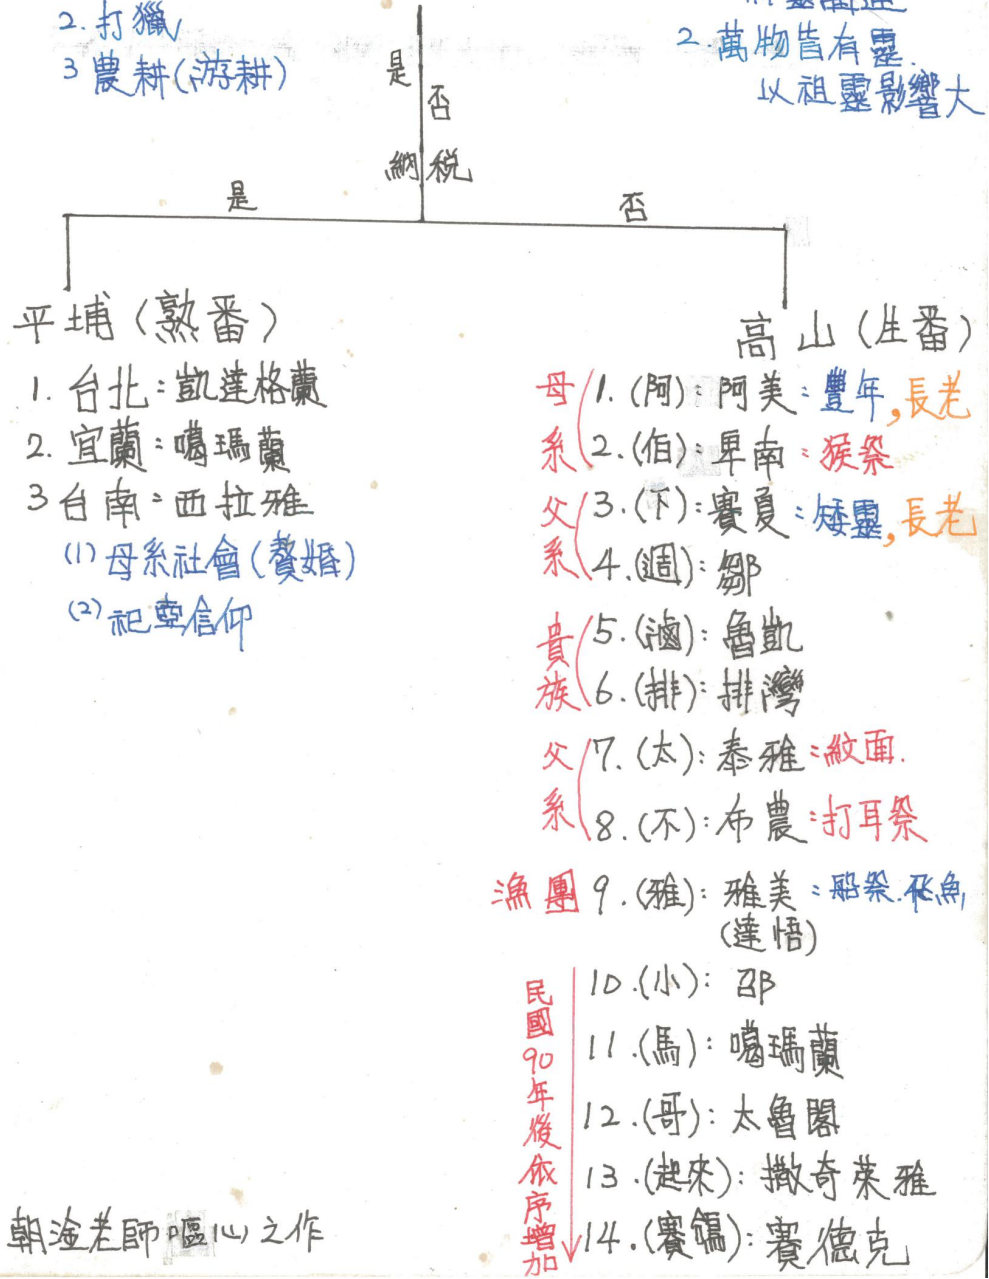 2. 打獵
3 農耕(游耕)
2. 萬物皆有靈.
以祖靈影響大
是
否
納 稅
是
否
平埔(熟番)
1. 台北:凱達格蘭
2. 宜蘭:噶瑪蘭
3 台南:西拉雅
(1) 母系社會(贅婚)
(2) 祀壺信仰
高山(生番)
母系
1. (阿):阿美:豐年,長老
2. (伯):卑南:猴祭
父系
3. (下):賽夏:矮靈,長老
4. (週):鄒
貴族
5. (滷):魯凱
6. (排):排灣
父系
7. (太):泰雅:紋面.
8. (不):布農:打耳祭
漁團 9. (雅):雅美:船祭.飛魚
(達悟)
民國90年後依序增加
10.(小):邵
11.(馬):噶瑪蘭
12.(哥):太魯閣
13.(起來):撒奇萊雅
14.(賽鴿):賽德克
朝淦老師嘔心之作